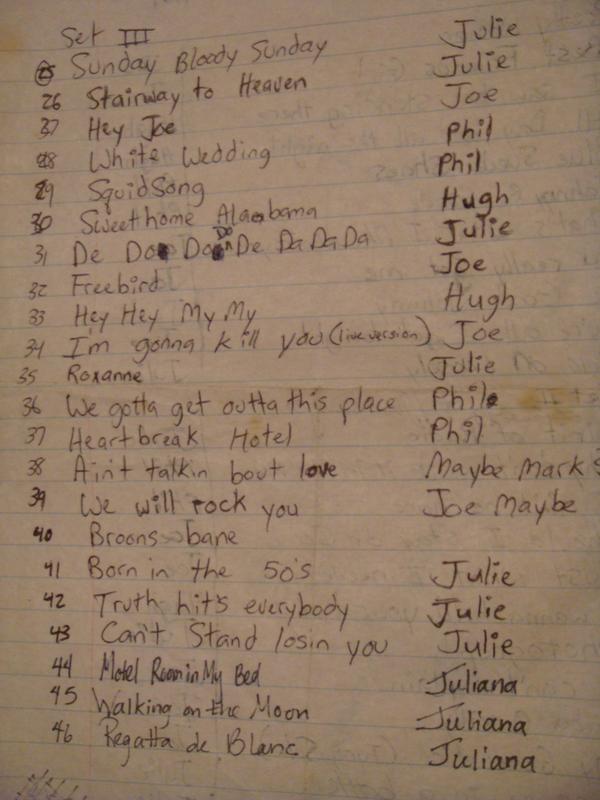 Set III
25 Sunday Bloody Sunday Julie
26 Stairway to Heaven Julie
27 Hey Joe Joe
28 White Wedding Phil
29 Squid Song Phil
30 Sweet home Alabama Hugh
31 De Do Do Do De Da Da Da Julie
32 Freebird Joe
33 Hey Hey My My Hugh
34 I'm gonna kill you (live version) Joe
35 Roxanne Julie
36 We gotta get outta this place Phil
37 Heartbreak Hotel Phil
38 Ain't talkin bout love Maybe Mark
39 We will rock you Joe Maybe
40 Broons bane
41 Born in the 50's Julie
42 Truth hit's everybody Julie
43 Can't Stand losin you Julie
44 Motel Room in My Bed Juliana
45 Walking on the Moon Juliana
46 Regatta de Blanc Juliana